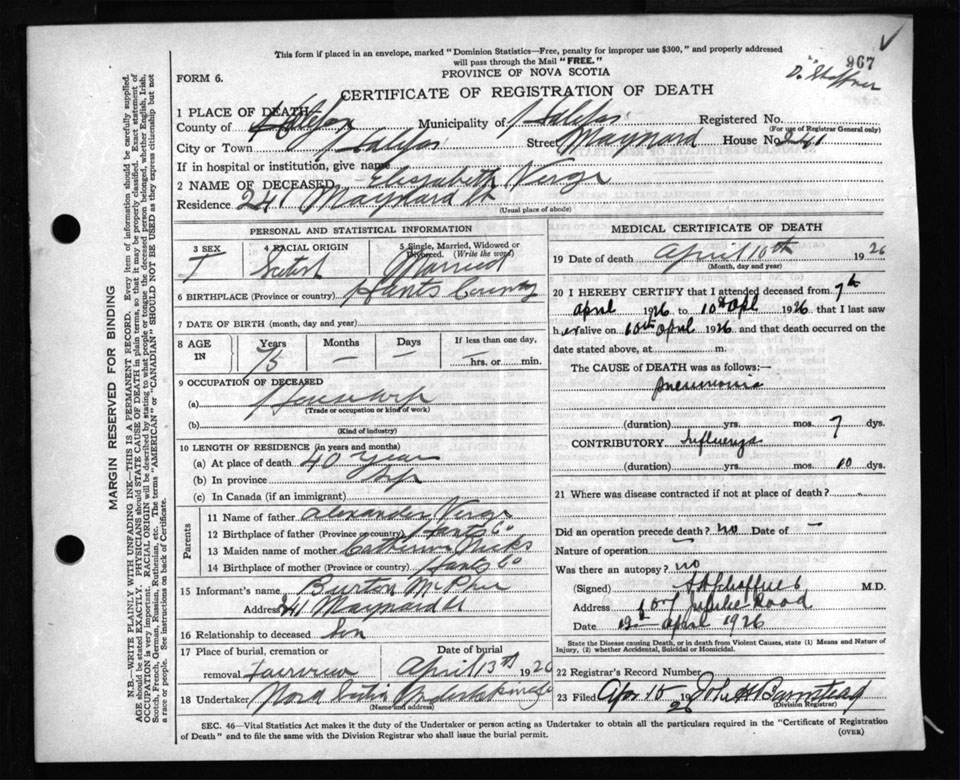 This form if placed in an envelope, marked "Dominion Statistics—Free, penalty for improper use $300," and properly addressed
will pass through the Mail "FREE."
967
FORM 6.
PROVINCE OF NOVA SCOTIA
CERTIFICATE OF REGISTRATION OF DEATH
1 PLACE OF DEATH
County of Halifax Municipality of Halifax Registered No.
(For use of Registrar General only)
City or Town Halifax Street Maynard House No. 241
If in hospital or institution, give name
2 NAME OF DECEASED Elizabeth Verge
Residence 241 Maynard St
(Usual place of abode)
PERSONAL AND STATISTICAL INFORMATION
3 SEX 4 RACIAL ORIGIN 5 Single, Married, Widowed or Divorced. (Write the word)
Married
6 BIRTHPLACE (Province or country) Hants County
7 DATE OF BIRTH (month, day and year)
8 AGE IN Years Months Days If less than one day,
— — hrs. or min.
9 OCCUPATION OF DECEASED
(a) Housewife
(Trade or occupation or kind of work)
(b)
(Kind of industry)
10 LENGTH OF RESIDENCE (in years and months)
(a) At place of death 40 Years
(b) In province
(c) In Canada (if an immigrant)
Parents
11 Name of father Alexander Verge
12 Birthplace of father (Province or country) Hants Co
13 Maiden name of mother Catherine
14 Birthplace of mother (Province or country) Hants Co
15 Informant's name Burton McPhee
Address 241 Maynard St
16 Relationship to deceased Son
17 Place of burial, cremation or removal Fairview
Date of burial April 13th 1926
18 Undertaker Nova Scotia Undertaking Co
(Name and address)
MEDICAL CERTIFICATE OF DEATH
19 Date of death April 10th 1926
(Month, day and year)
20 I HEREBY CERTIFY that I attended deceased from 7th
April 1926 to 10th Apl 1926 that I last saw
her alive on 10th April 1926 and that death occurred on
date stated above, at m.
The CAUSE of DEATH was as follows:—
Pneumonia
(duration) yrs. mos. 7 dys.
CONTRIBUTORY Influenza
(duration) yrs. mos. 10 dys.
21 Where was disease contracted if not at place of death?
Did an operation precede death? no Date of —
Nature of operation —
Was there an autopsy? no
(Signed) M.D.
Address
Date 12th April 1926
State the Disease causing Death, or in death from Violent Causes, state (1) Means and Nature of
Injury, (2) whether Accidental, Suicidal or Homicidal.
22 Registrar's Record Number
23 Filed Apr 15 1926 John H Barnstead
(Division Registrar)
SEC. 46—Vital Statistics Act makes it the duty of the Undertaker or person acting as Undertaker to obtain all the particulars required in the "Certificate of Registration
of Death" and to file the same with the Division Registrar who shall issue the burial permit.
(OVER)
MARGIN RESERVED FOR BINDING
N.B.—WRITE PLAINLY WITH UNFADING INK—THIS IS A PERMANENT RECORD. Every item of information should be carefully supplied.
AGE should be stated EXACTLY. PHYSICIANS should STATE CAUSE OF DEATH in plain terms, so that it may be properly classified. Exact statement of
OCCUPATION is very important. RACIAL ORIGIN will be described by stating to what people or tongue the deceased person belonged, whether English, Irish,
Scotch, French, German, Russian, Ruthenian, etc. The terms "AMERICAN" or "CANADIAN" SHOULD NOT BE USED as they express citizenship but not
a race or people. See instructions on back of Certificate.